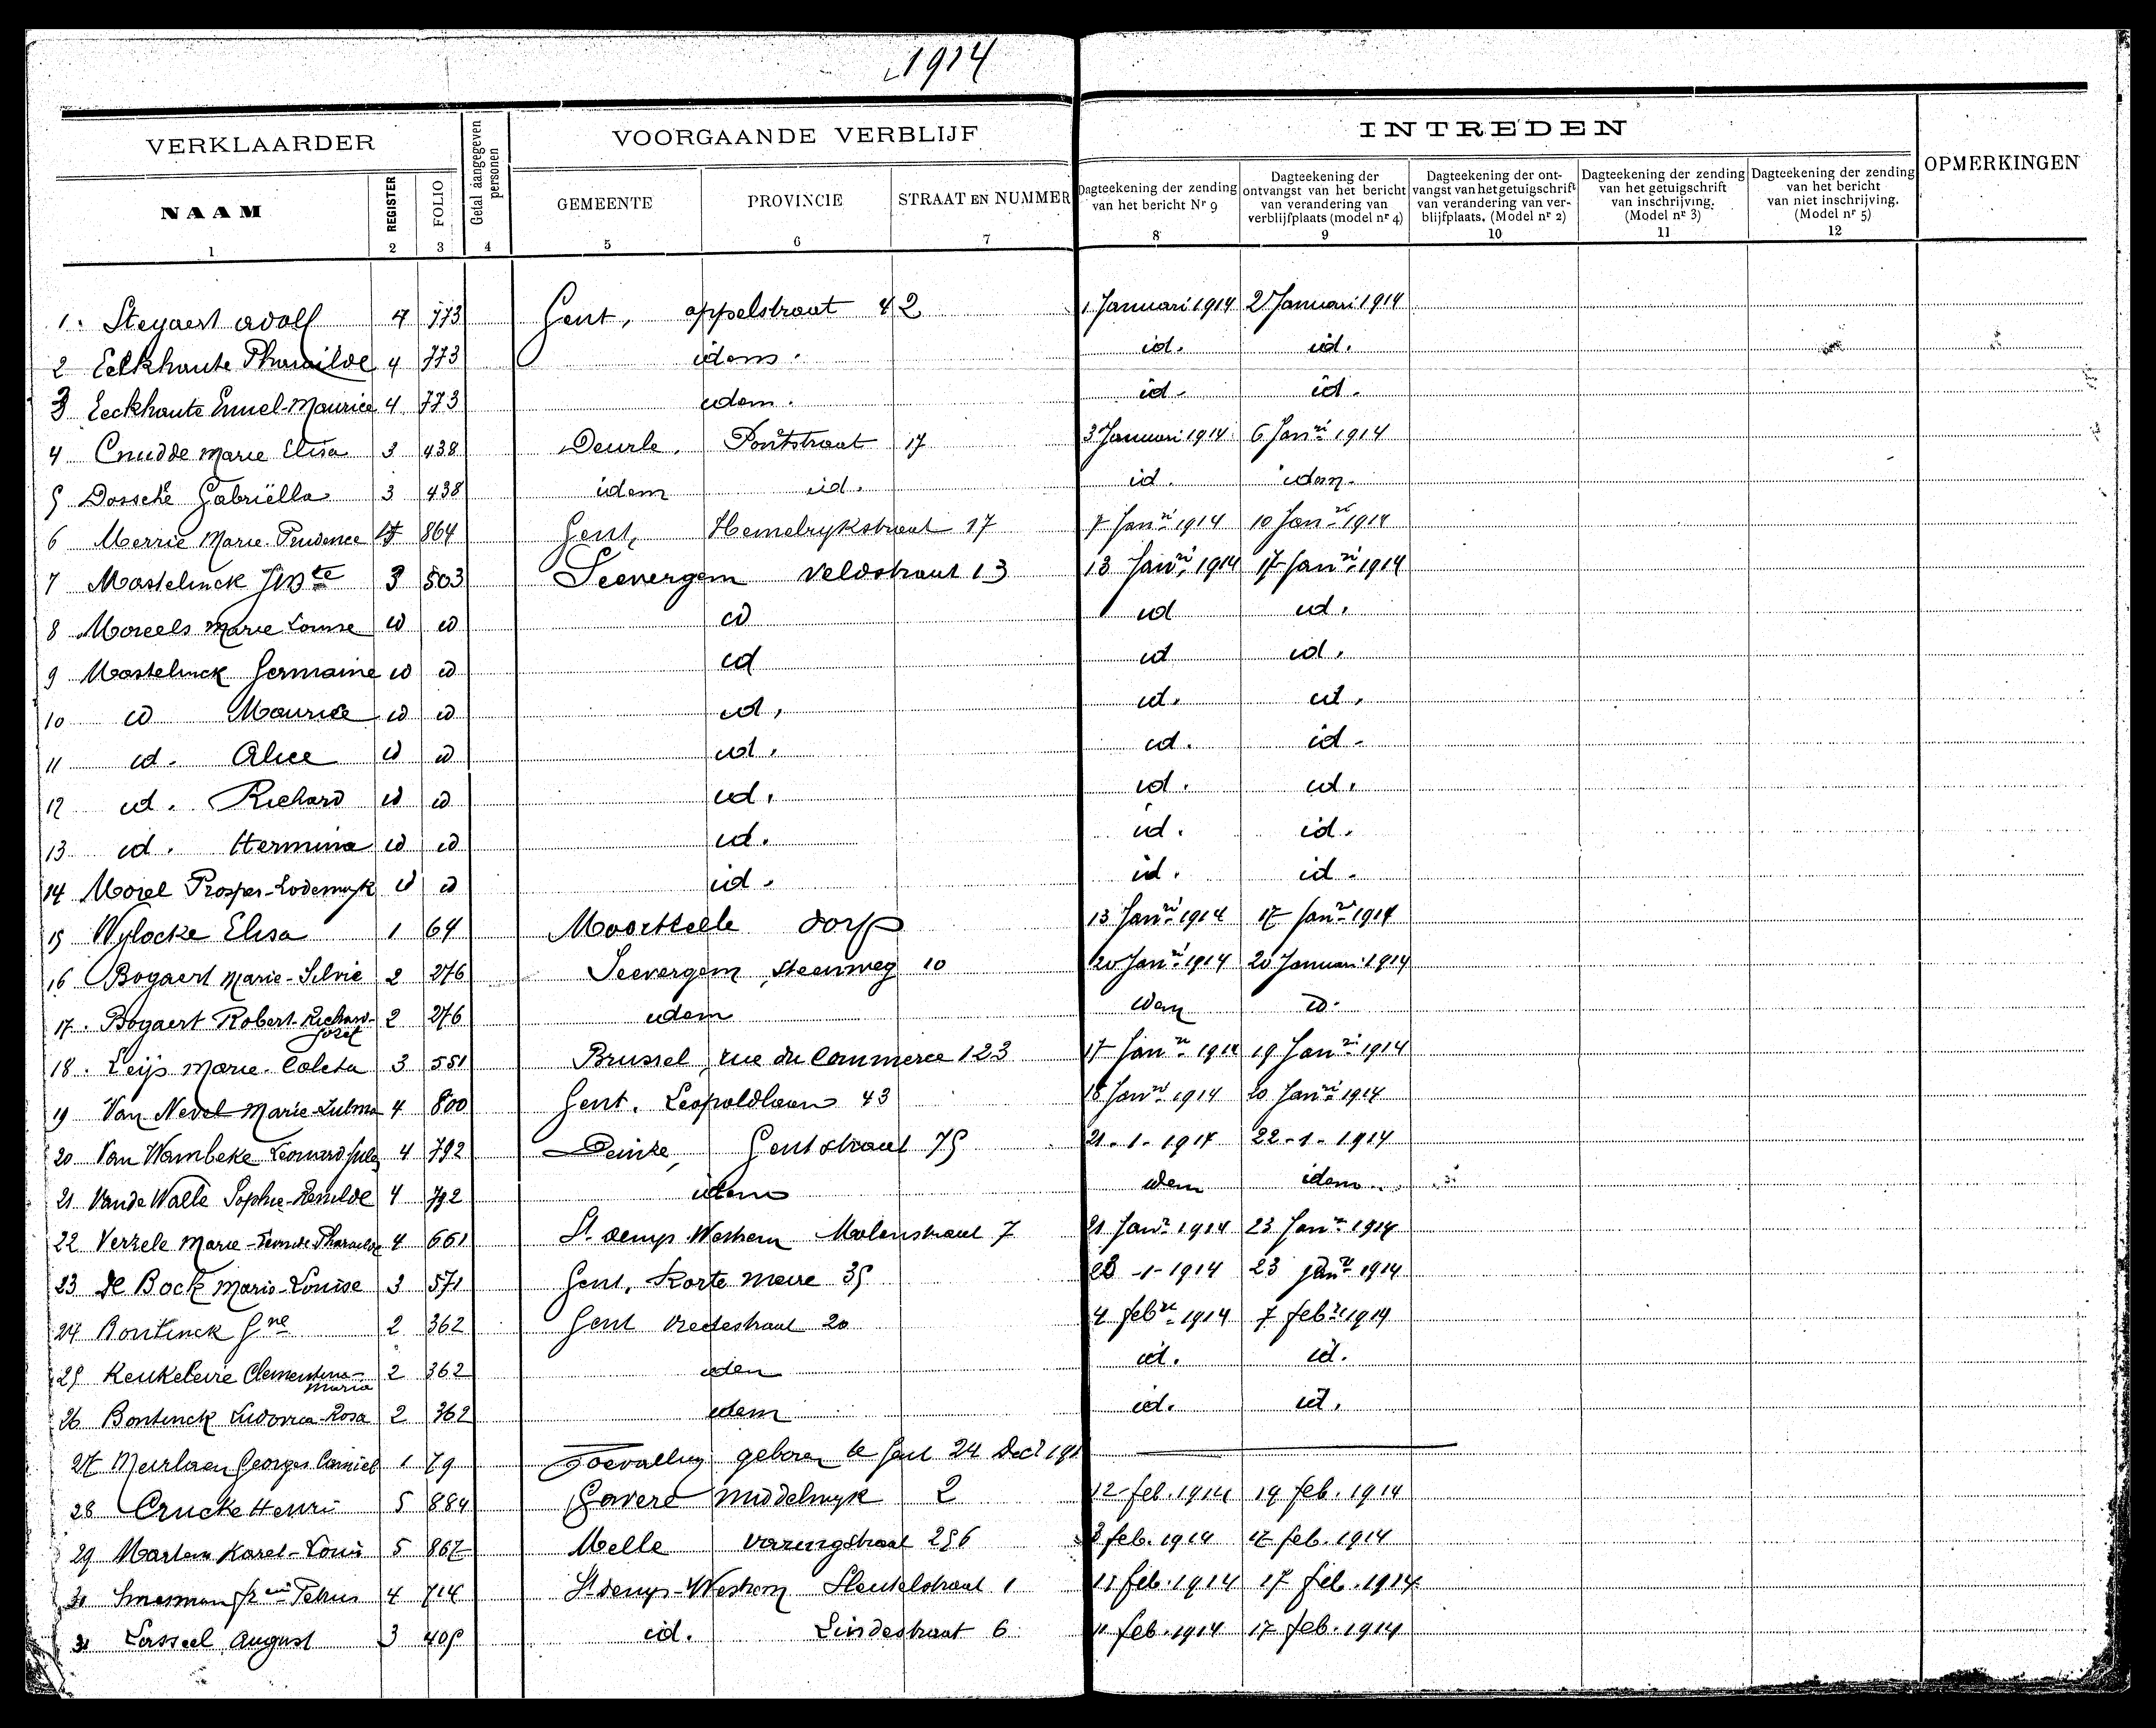 1914
VERKLAARDER
Getal aangegeven personen
VOORGAANDE VERBLIJF
INTREDEN
OPMERKINGEN
NAAM
REGISTER
FOLIO
GEMEENTE
PROVINCIE
STRAAT EN NUMMER
Dagteekening der zending van het bericht Nr 9
Dagteekening der ontvangst van het bericht van verandering van verblijfplaats (model nr 4)
Dagteekening der ontvangst van het getuigschrift van verandering van verblijfplaats. (Model nr 2)
Dagteekening der zending van het getuigschrift van inschrijving. (Model nr 3)
Dagteekening der zending van het bericht van niet inschrijving. (Model nr 5)
1 2 3 4 5 6 7 8 9 10 11 12
1. Steyaert Adolf 4 773 Gent, appelstraat 42 1 Januari 1914 2 Januari 1914
2 Eekhaute Pharaïlde 4 773 idem. id. id.
3 Eeckhaute Emiel-Maurice 4 773 idem. id. id.
4 Cnudde Marie Elisa 3 438 Deurle, Pontstraat 17 3 Januari 1914 6 Janri 1914
5 Dossche Gabriëlla 3 438 idem id. id. idem.
6 Merrie Marie-Prudence 864 Gent, Hemelrykstraat 17 7 Janri 1914 10 Janri 1914
7 Mastelinck 3 503 Seevergem Veldstraat 13 13 Janri 1914 17 Janri 1914
8 Moreels Marie Louise id id id id id.
9 Mastelinck Germaine id id id id id.
10 id Maurice id id id. id. id.
11 id. Alice id id id. id. id.
12 id. Richard id id id. id. id.
13 id. Hermina id id id. id. id.
14 Morel Prosper-Lodewyk id id id. id. id.
15 Wylocke Elisa 1 64 Moortzele dorp 13 Janri 1914 17 Janri 1914
16 Bogaert Marie-Silvie 2 276 Seevergem Steenweg 10 20 Janri 1914 20 Januari 1914
17. Bogaert Robert-Richard-Jozef 2 276 idem idem id.
18. Leijs Marie-Coleta 3 551 Brussel, rue du Commerce 123 17 Janri 1914 19 Janri 1914
19 Van Nevel Marie-Zulma 4 800 Gent. Leopoldlaan 43 18 Janri 1914 20 Janri 1914
20 Van Wambeke Leonard 4 792 Deinze, Gentstraat 75 21-1-1914 22-1-1914
21 Vande Walle Sophie-Remilde 4 792 idem idem idem
22 Verzele Marie 4 661 St denys Westrem Molenstraat 7 21 Janri 1914 23 Janri 1914
23 De Bock Marie-Louise 3 571 Gent, Korte Meire 35 -1-1914 23 janri 1914
24 Bontinck 2 362 Gent Vredestraat 20 4 febri 1914 7 febri 1914
25 Keukeleire Clementina-Maria 2 362 idem id. id.
26 Bontinck Ludovica Rosa 2 362 idem id. id.
27 Meirlaen Georges Camiel 1 79 Toevallig geboren te Gent 24 Dec
28 Crucke Henri 5 884 Gavere Middelwyk 2 12 feb. 1914 19 feb. 1914
29 Martens Karel-Louis 5 867 Melle 256 3 feb. 1914 17 feb. 1914
Petrus 4 714 St denys-Westrem Sleutelstraat 1 11 feb. 1914 17 feb. 1914
31 August 3 405 id. Lindestraat 6 11 feb. 1914 17 feb. 1914